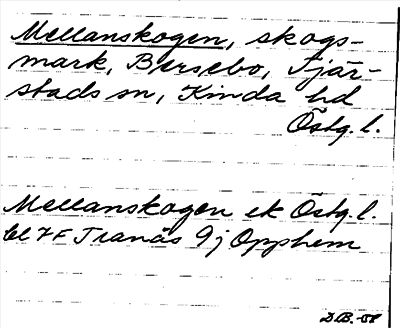 Mellanskogen, skogs-
mark, Bersebo, Tjär-
stads sn, Kinda hd
Östg. l.
Mellanskogen ek Östg. l.
bl 7F Tranås 9j Opphem
DB.-58